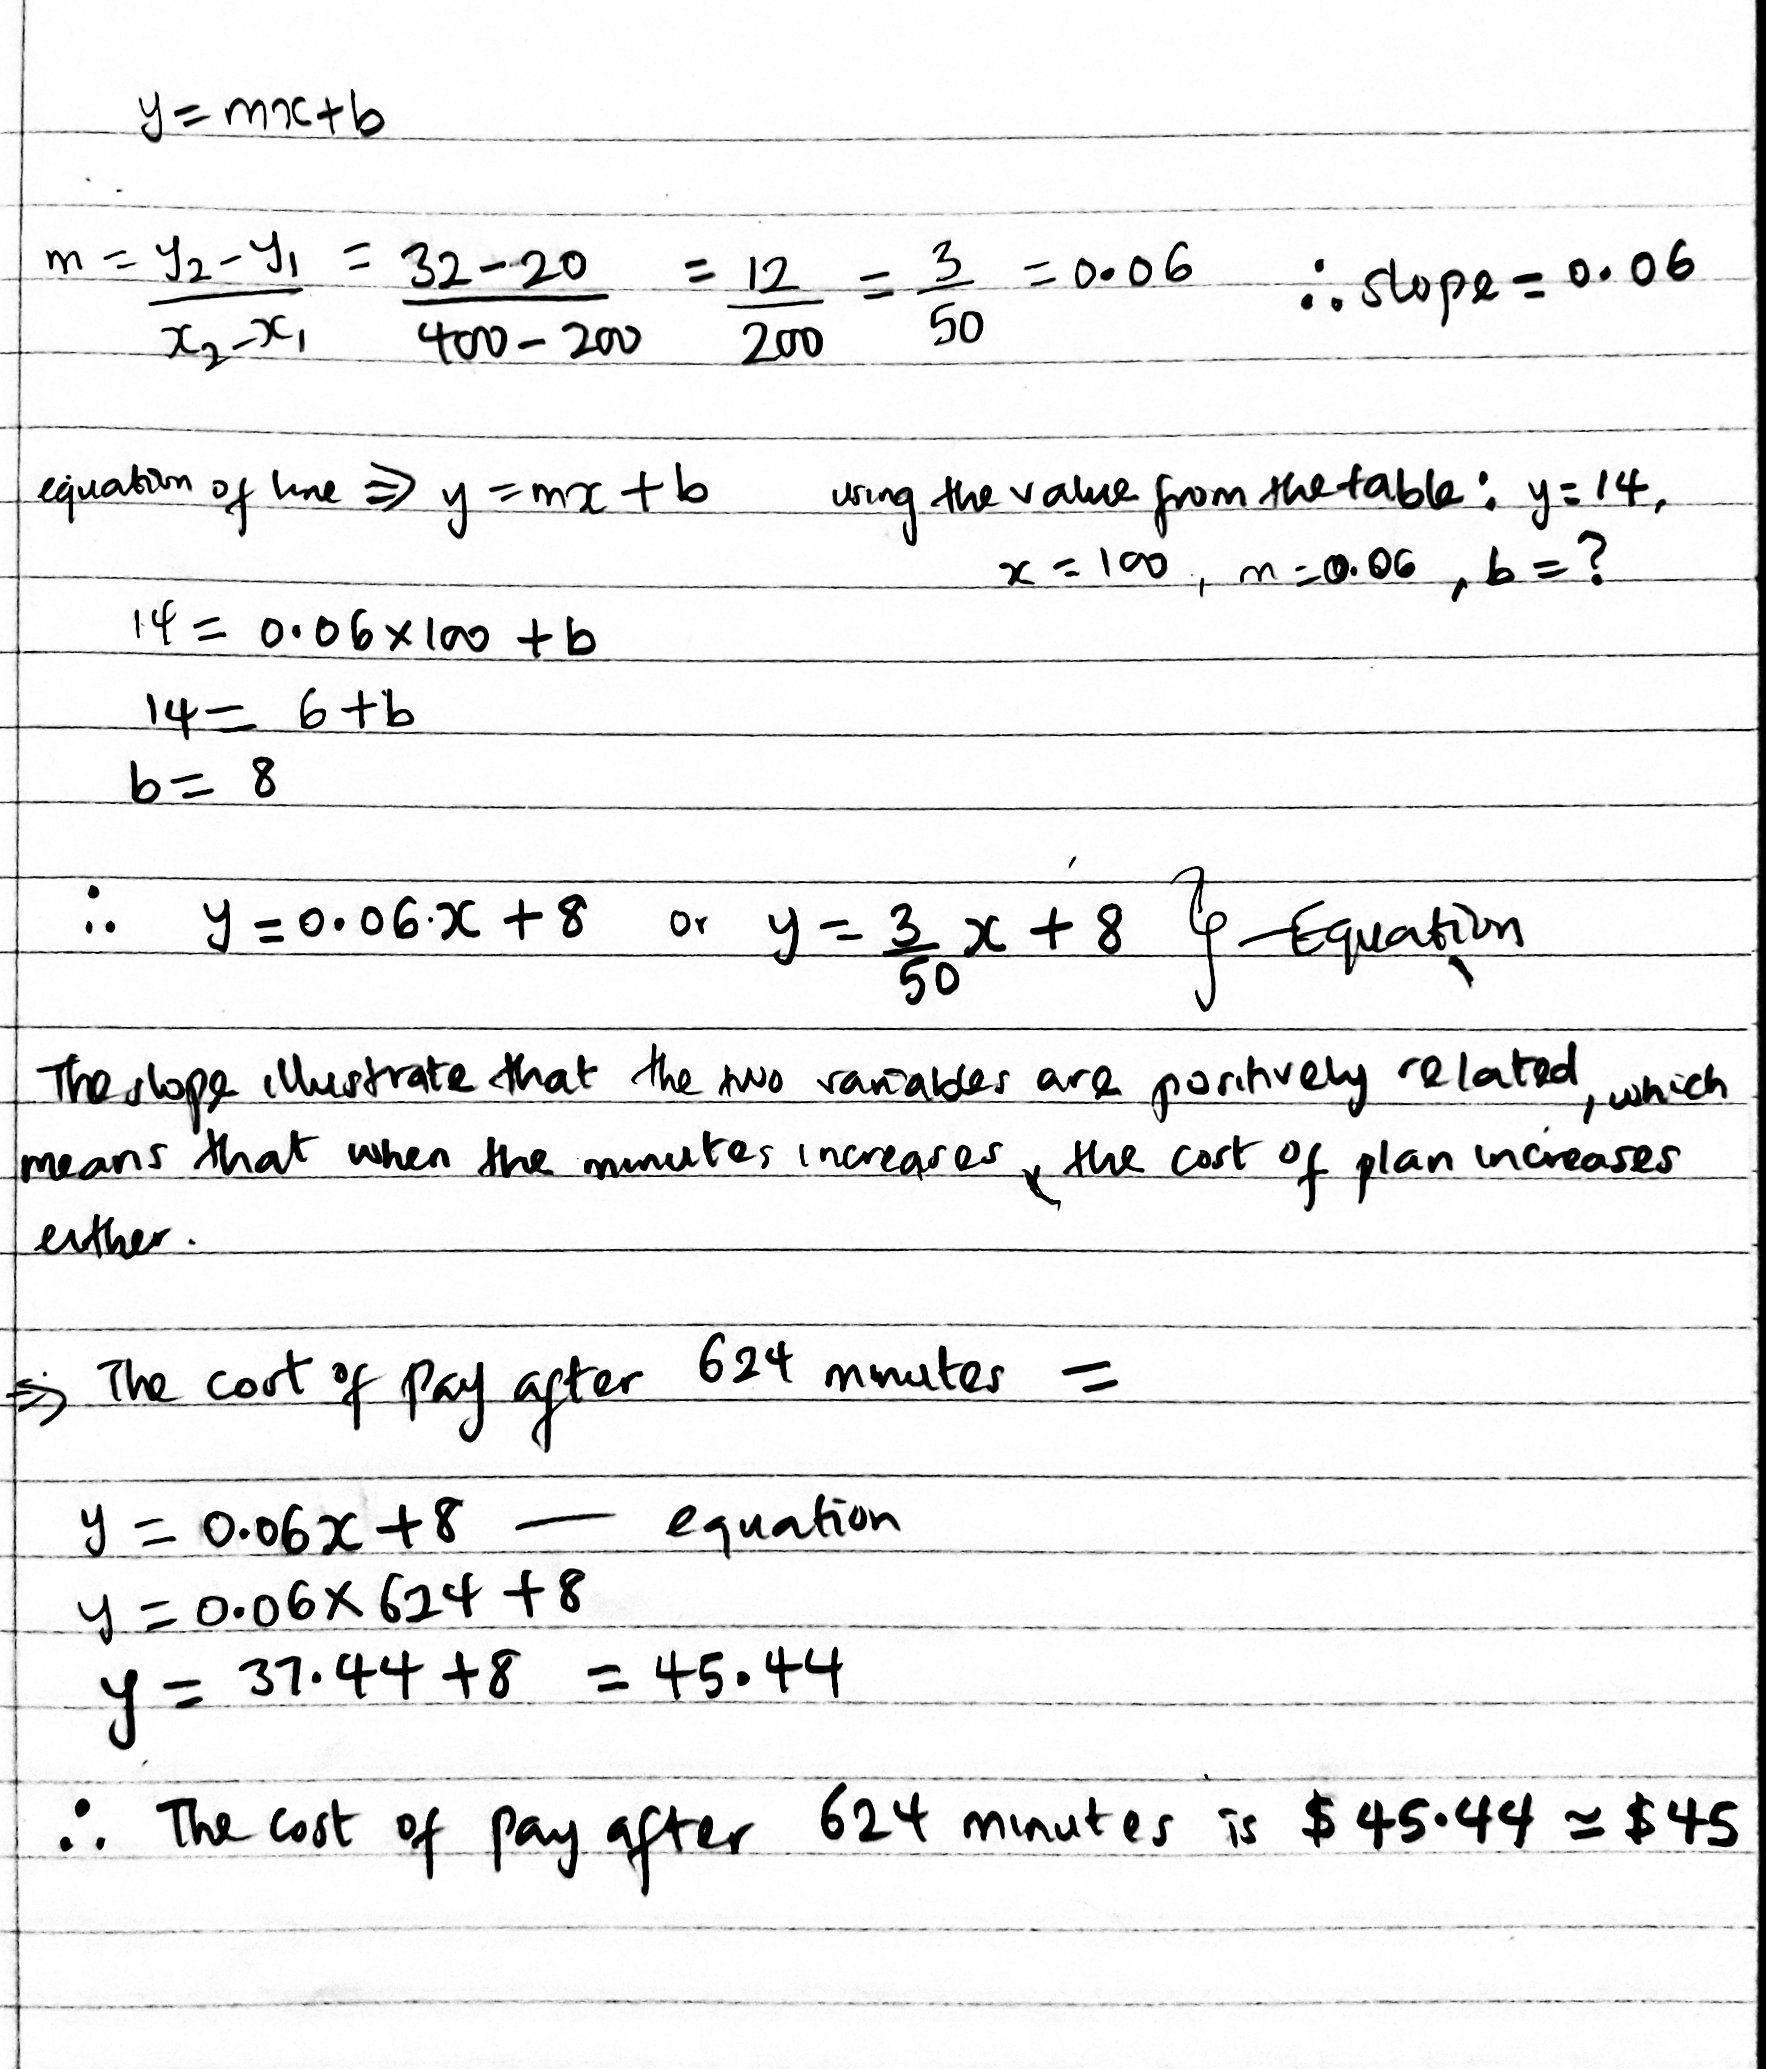 y = mx + b
m = y₂ - y₁ / x₂ - x₁ = 32 - 20 / 400 - 200 = 12 / 200 = 3 / 50 = 0.06 ∴ slope = 0.06
equation of line ⇒ y = mx + b using the value from the table: y = 14,
x = 100, m = 0.06, b = ?
14 = 0.06 × 100 + b
14 = 6 + b
b = 8
∴ y = 0.06·x + 8 or y = 3/50 x + 8 } - Equation
The slope illustrate that the two variables are positively related, which
means that when the minutes increases, the cost of plan increases
either.
⇒ The cost of pay after 624 minutes =
y = 0.06x + 8 — equation
y = 0.06 × 624 + 8
y = 37.44 + 8 = 45.44
∴ The cost of pay after 624 minutes is $45.44 ≃ $45